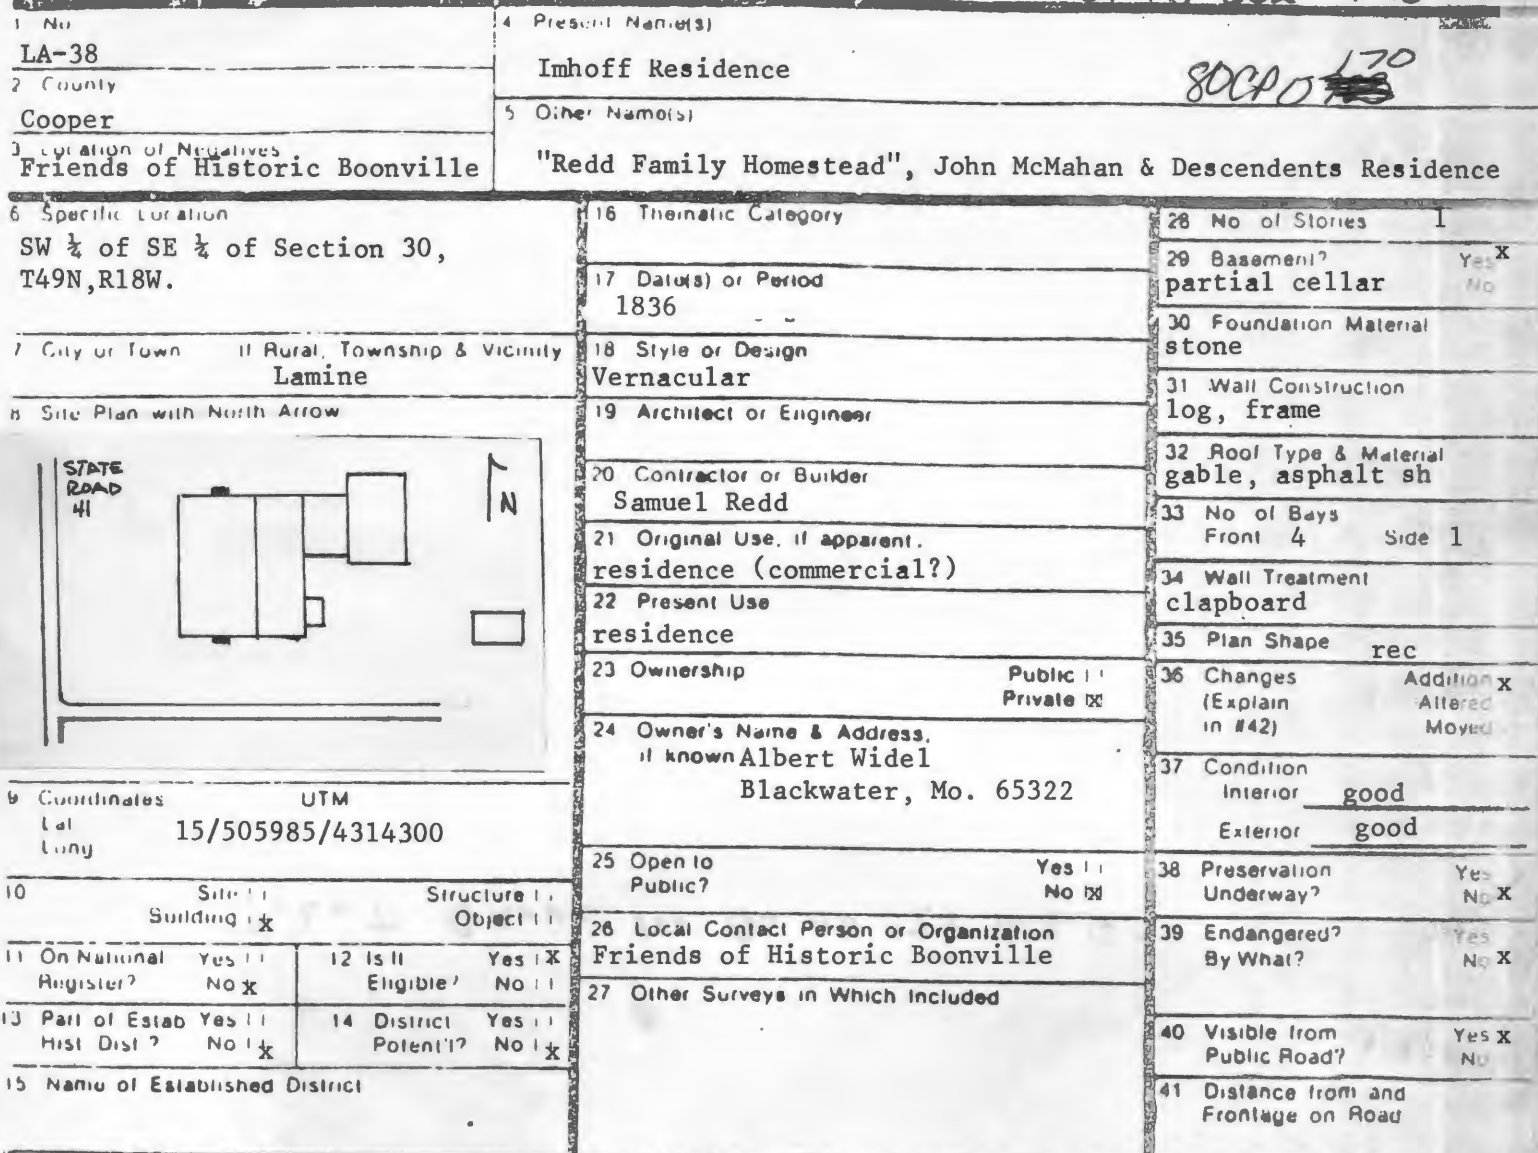 1 No
LA-38
2 County
Cooper
3 Location of Negatives
Friends of Historic Boonville
4 Present Name(s)
Imhoff Residence
80CP0 170
5 Other Name(s)
"Redd Family Homestead", John McMahan & Descendents Residence
6 Specific Location
SW ¼ of SE ¼ of Section 30,
T49N,R18W.
7 City or Town If Rural, Township & Vicinity
Lamine
8 Site Plan with North Arrow
STATE
ROAD
41
N
9 Coordinates UTM
Lat
Long
15/505985/4314300
10 Site Structure
Building x Object
11 On National Yes
Register? No x
12 Is It Yes x
Eligible? No
13 Part of Estab Yes
Hist Dist? No x
14 District Yes
Potent'l? No x
15 Name of Established District
16 Thematic Category
17 Date(s) or Period
1836
18 Style or Design
Vernacular
19 Architect or Engineer
20 Contractor or Builder
Samuel Redd
21 Original Use, if apparent.
residence (commercial?)
22 Present Use
residence
23 Ownership Public
Private x
24 Owner's Name & Address,
if known Albert Widel
Blackwater, Mo. 65322
25 Open to Yes
Public? No x
26 Local Contact Person or Organization
Friends of Historic Boonville
27 Other Surveys in Which Included
28 No of Stories 1
29 Basement? Yes x
partial cellar No
30 Foundation Material
stone
31 Wall Construction
log, frame
32 Roof Type & Material
gable, asphalt sh
33 No of Bays
Front 4 Side 1
34 Wall Treatment
clapboard
35 Plan Shape rec
36 Changes Addition x
(Explain Altered
in #42) Moved
37 Condition
Interior good
Exterior good
38 Preservation Yes
Underway? No x
39 Endangered? Yes
By What? No x
40 Visible from Yes x
Public Road? No
41 Distance from and
Frontage on Road